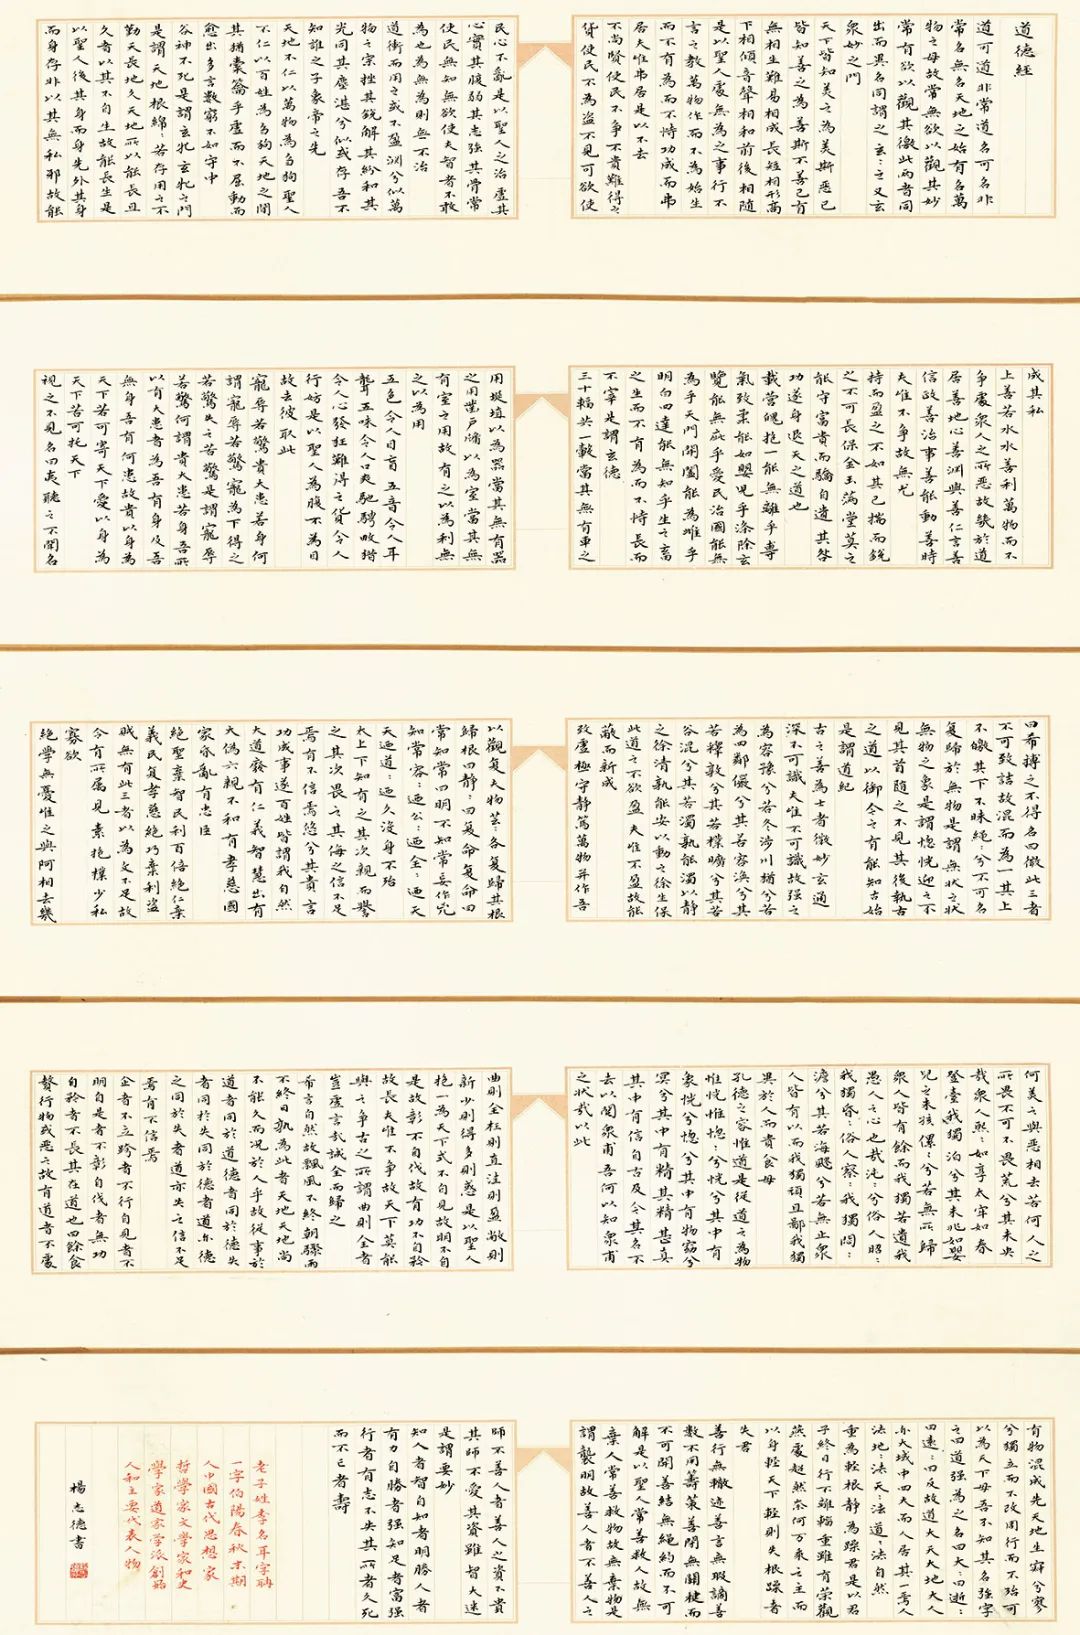 道德經
道可道非常道名可名非
常名無名天地之始有名萬
物之母故常無欲以觀其妙
常有欲以觀其徼此兩者同
出而異名同謂之玄:之又玄
眾妙之門
天下皆知美之為美斯惡已
皆知善之為善斯不善已有
無相生難易相成長短相形高
下相傾音聲相和前後相隨
是以聖人處無為之事行不
言之教萬物作而不為始生
而不有為而不恃功成而弗
居夫唯弗居是以不去
不尚賢使民不爭不貴難得之
貨使民不為盜不見可欲使
民心不亂是以聖人之治虛其
心實其腹弱其志強其骨常
使民無知無欲使夫智者不敢
為也為無為則無不治
道衝而用之或不盈淵兮似萬
物之宗挫其銳解其紛和其
光同其塵湛兮似或存吾不
知誰之子象帝之先
天地不仁以萬物為芻狗聖人
不仁以百姓為芻狗天地之間
其猶橐籥乎虛而不屈動而
愈出多言數窮不如守中
谷神不死是謂玄牝玄牝之門
是謂天地根綿:若存用之不
勤天長地久天地所以能長且
久者以其不自生故能長生是
以聖人後其身而身先外其身
而身存非以其無私邪故能
成其私
上善若水水善利萬物而不
爭處眾人之所惡故幾於道
居善地心善淵與善仁言善
信政善治事善能動善時
夫唯不爭故無尤
持而盈之不如其已揣而銳
之不可長保金玉滿堂莫之
能守富貴而驕自遺其咎
功遂身退天之道也
載營魄抱一能無離乎專
氣致柔能如嬰兒乎滌除玄
覽能無疵乎愛民治國能無
為乎天門開闔能為雌乎
明白四達能無知乎生之畜
之生而不有為而不恃長而
不宰是謂玄德
三十輻共一轂當其無有車之
用埏埴以為器當其無有器
之用鑿戶牖以為室當其無
有室之用故有之以為利無
之以為用
五色令人目盲五音令人耳
聾五味令人口爽馳騁畋獵
令人心發狂難得之貨令人
行妨是以聖人為腹不為目
故去彼取此
寵辱若驚貴大患若身何
謂寵辱若驚寵為下得之
若驚失之若驚是謂寵辱
若驚何謂貴大患若身吾所
以有大患者為吾有身及吾
無身吾有何患故貴以身為
天下若可寄天下愛以身為
天下若可托天下
視之不見名曰夷聽之不聞名
曰希搏之不得名曰微此三者
不可致詰故混而為一其上
不皦其下不昧繩:兮不可名
復歸於無物是謂無狀之狀
無物之象是謂惚恍迎之不
見其首隨之不見其後執古
之道以御今之有能知古始
是謂道紀
古之善為士者微妙玄通
深不可識夫唯不可識故強之
為容豫兮若冬涉川猶兮若
為四鄰儼兮其若容渙兮其
若釋敦兮其若樸曠兮其若
谷混兮其若濁孰能濁以靜
之徐清孰能安以動之徐生保
此道者不欲盈夫唯不盈故能
蔽而新成
致虛極守靜篤萬物並作吾
以觀复夫物芸:各复歸其根
歸根曰靜:曰复命复命曰
常知常曰明不知常妄作凶
知常容:迺公:迺全:迺天
天迺道:迺久沒身不殆
太上下知有之其次親而譽
之其次畏之其侮之信不足
焉有不信焉悠兮其貴言
功成事遂百姓皆謂我自然
大道廢有仁義智慧出有
大偽六親不和有孝慈國
家昏亂有忠臣
絕聖棄智民利百倍絕仁棄
義民复孝慈絕巧棄利盜
賊無有此三者以為文不足故
令有所屬見素抱樸少私
寡欲
絕學無憂唯之與阿相去幾
何美之與惡相去若何人之
所畏不可不畏荒兮其未央
哉眾人熙:如享太牢如春
登臺我獨泊兮其未兆如嬰
兒之未孩儽:兮若無所歸
眾人皆有餘而我獨若遺我
愚人之心也哉沌:兮俗人昭:
我獨昏:俗人察:我獨悶:
澹兮其若海飂兮若無止眾
人皆有以而我獨頑且鄙我獨
異於人而貴食母
孔德之容惟道是從道之為物
惟恍惟惚:兮恍兮其中有
象恍兮惚兮其中有物窈兮
冥兮其中有精其精甚真
其中有信自古及今其名不
去以閱眾甫吾何以知眾甫
之狀哉以此
曲則全枉則直窪則盈敝則
新少則得多則惑是以聖人
抱一為天下式不自見故明不自
是故彰不自伐故有功不自矜
故長夫唯不爭故天下莫能
與之爭古之所謂曲則全者
豈虛言哉誠全而歸之
希言自然故飄風不終朝驟雨
不終日孰為此者天地天地尚
不能久而況於人乎故從事於
道者同於道德者同於德失
者同於失同於德者道亦德
之同於失者道亦失之信不足
焉有不信焉
企者不立跨者不行自見者不
明自是者不彰自伐者無功
自矜者不長其在道也曰餘食
贅行物或惡之故有道者不處
有物混成先天地生寂兮寥
兮獨立而不改周行而不殆可
以為天下母吾不知其名強字
之曰道強為之名曰大:曰逝:
曰遠:曰反故道大天大地大人
亦大域中四大而人居其一焉人
法地:法天:法道:法自然
重為輕根靜為躁君是以君
子終日行不離輜重雖有榮觀
燕處超然奈何萬乘之主而
以身輕天下輕則失根躁者
失君
善行無轍迹善言無瑕謫善
數不用籌策善閉無關楗而
不可開善結無繩約而不可
解是以聖人常善救人故無
棄人常善救物故無棄物是
謂襲明故善人者不善人之
師不善人者善人之資不貴
其師不愛其資雖智大迷
是謂要妙
知人者智自知者明勝人者
有力自勝者強知足者富強
行者有志不失其所者久死
而不亡者壽
老子姓李名耳字聃
一字伯陽春秋末期
人中國古代思想家
哲學家文學家和史
學家道家學派創始
人和主要代表人物
楊志德書